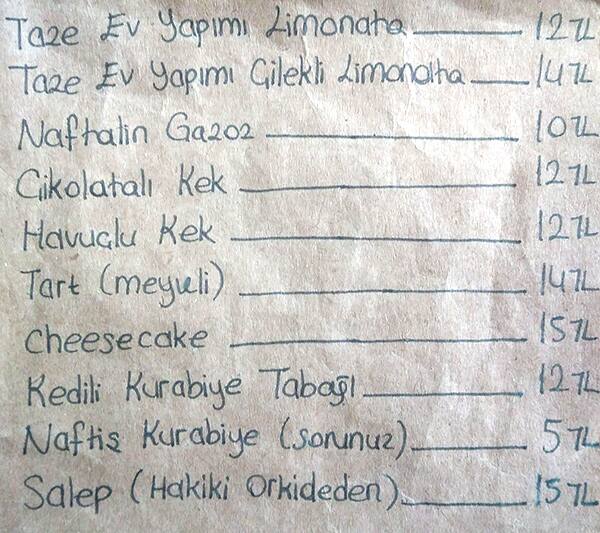 Taze Ev Yapımı Limonata 12 TL
Taze Ev Yapımı Çilekli Limonatta 14 TL
Naftalin Gazoz 10 TL
Çikolatalı Kek 12 TL
Havuçlu Kek 12 TL
Tart (meyveli) 14 TL
Cheesecake 15 TL
Kedili Kurabiye Tabağı 12 TL
Naftiş Kurabiye (sorunuz) 5 TL
Salep (Hakiki Orkideden) 15 TL